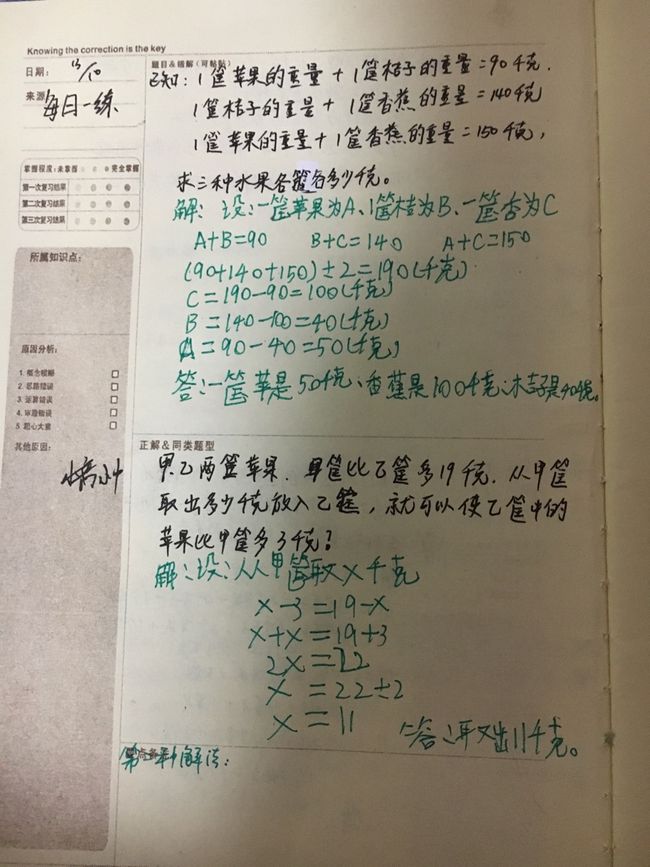 Knowing the correction is the key
日期： 13/10
题目&错解（可粘贴）
来源： 每日一练
已知：1筐苹果的重量+1筐桔子的重量=90千克．
1筐桔子的重量+1筐香蕉的重量=140千克
1筐苹果的重量+1筐香蕉的重量=150千克，
求三种水果各筐各多少千克。
掌握程度：未掌握 完全掌握
第一次复习结果
第二次复习结果
第三次复习结果
解：设：一筐苹果为A、1筐桔为B、一筐香为C
A+B=90 B+C=140 A+C=150
(90+140+150)÷2=190(千克)
C=190-90=100(千克)
B=140-100=40(千克)
A=90-40=50(千克)
答：一筐苹是50千克、香蕉是100千克、桔子是40千克。
所属知识点：
原因分析：
1. 概念模糊
2. 思路错误
3. 运算错误
4. 审题错误
5. 粗心大意
其他原因：
正解&同类题型
甲乙两筐苹果．甲筐比乙筐多19千克．从甲筐
取出多少千克放入乙筐，就可以使乙筐中的
苹果比甲筐多3千克？
解：设：从甲筐取x千克
x-3=19-x
x+x=19+3
2x=22
x=22÷2
x=11
答：取出11千克。
第一种解法：